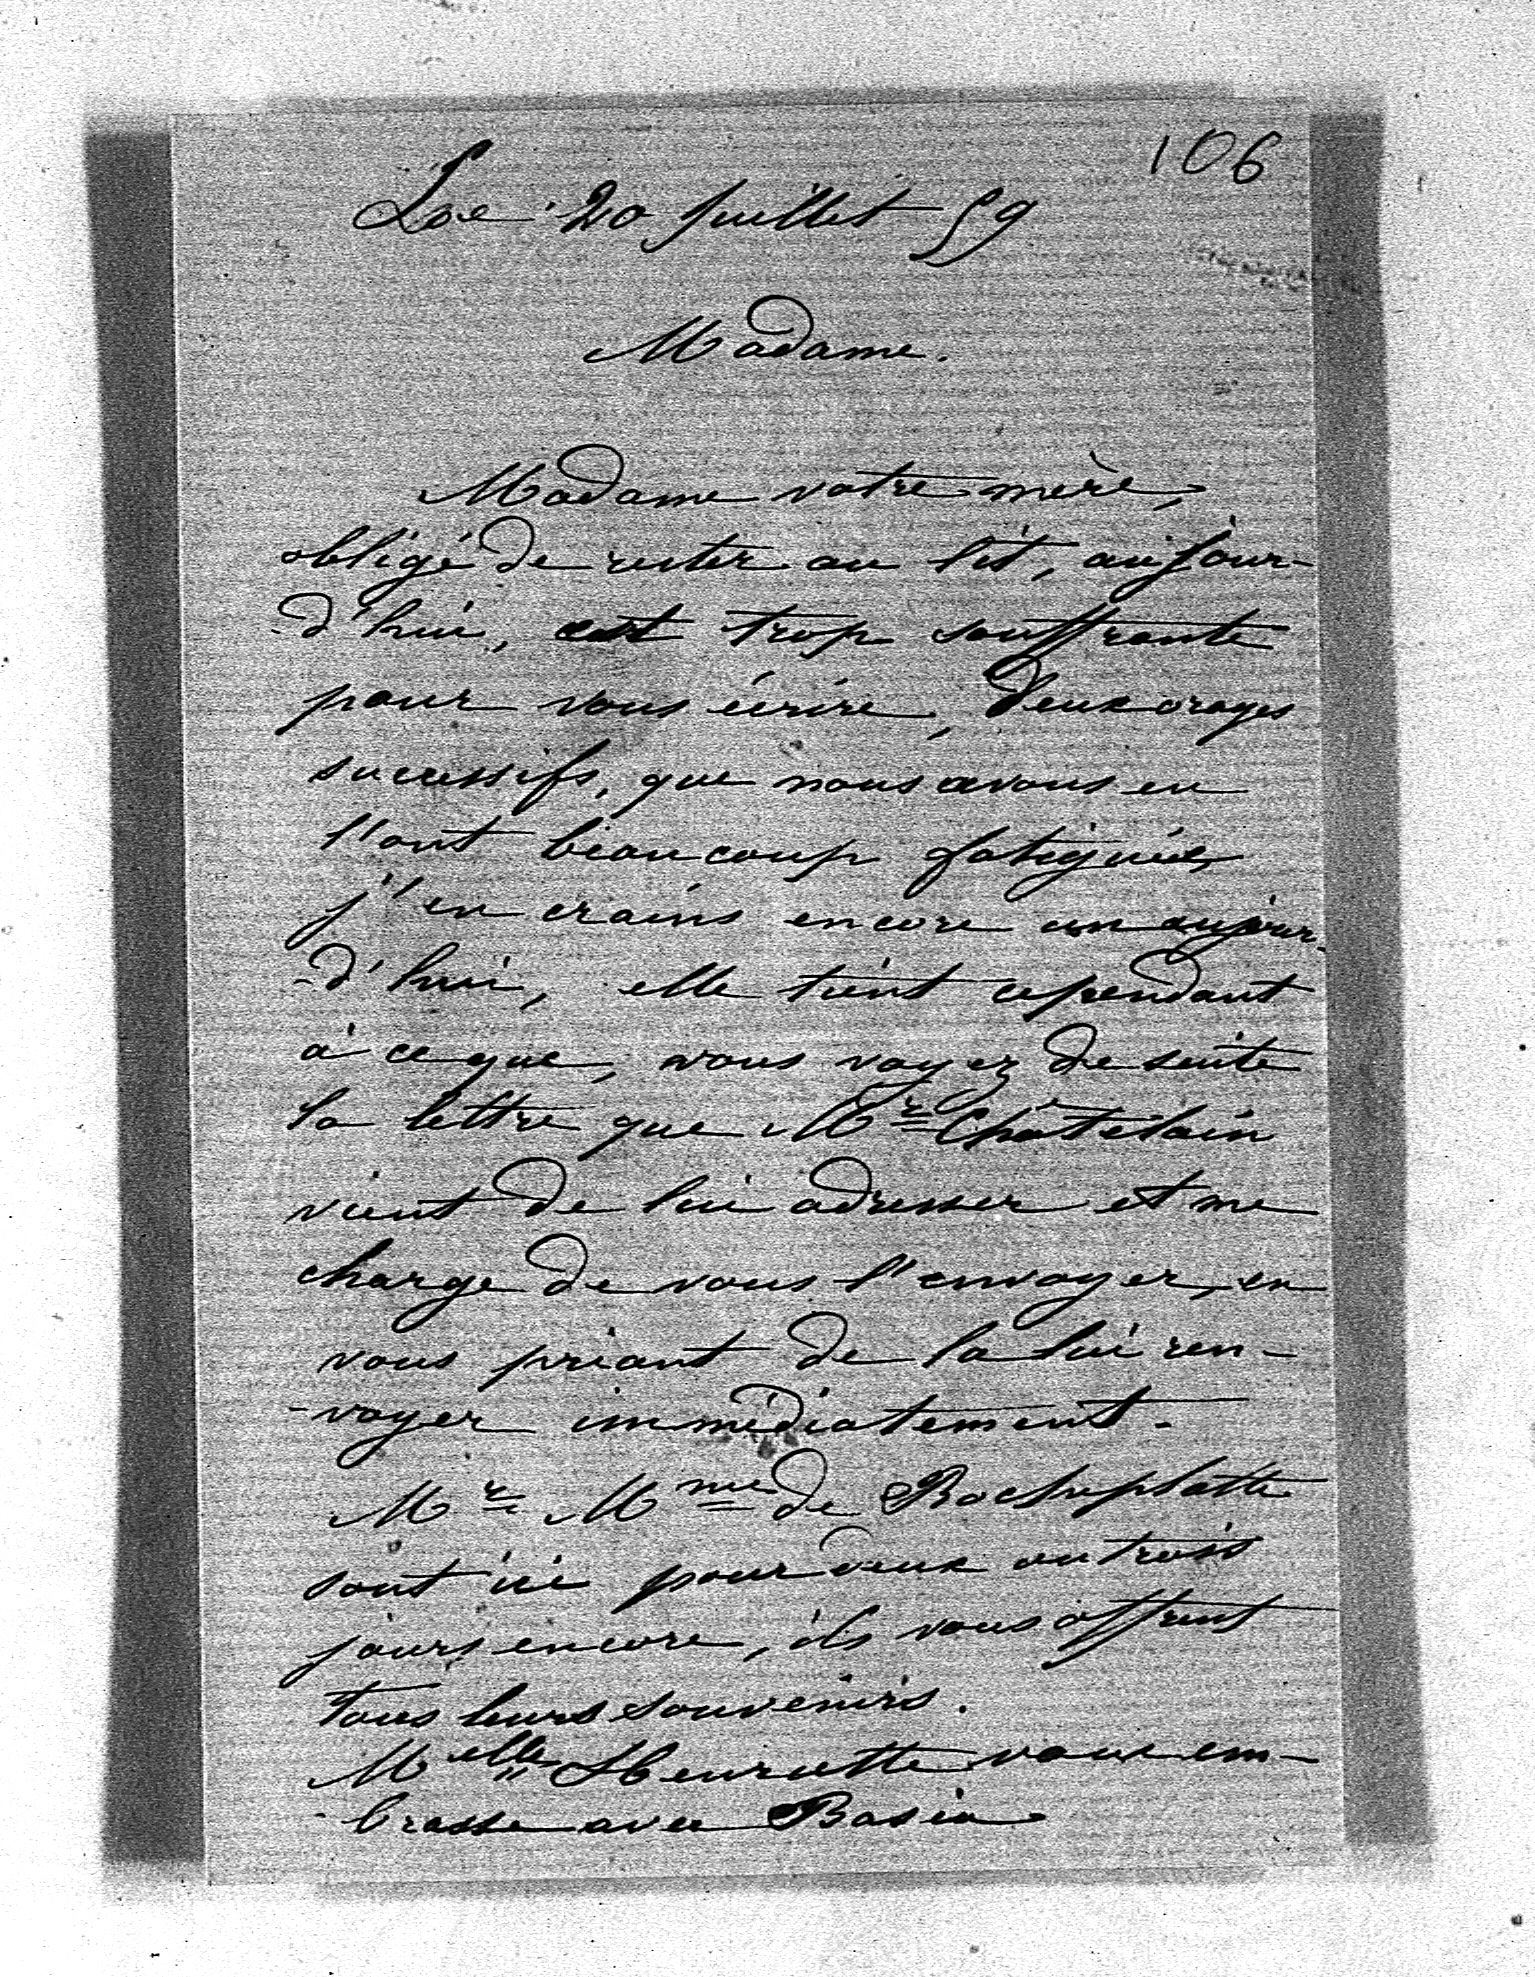 106
Le 20 Juillet 59
Madame.
Madame votre mère,
obligé de rester au lit, aujour-
-d'hui, est trop souffrante
pour vous écrire, deux orages
successifs, que nous avons eu
l'ont beaucoup fatiguée,
j'en crains encore un aujour-
-d'hui, elle tient cependant
à ce que, vous voyez de suite
la lettre que Mr Châtelain
vient de lui adresser et me
charge de vous l'envoyer, en
vous priant de la lui ren-
-voyer immédiatement.
Mr Mme de Rocheplatte
sont ici pour deux ou trois
jours encore, ils vous offrent
tous leurs souvenirs.
Melle Henriette vous em-
-brasse avec Basia